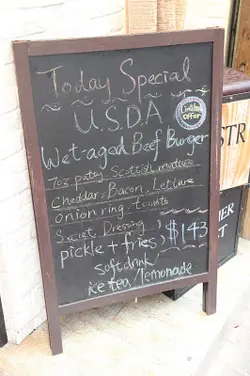 Today Special
U.S.D.A
Limited
offer
Wet-aged Beef Burger
7oz patty, Scottish mature
Cheddar, Bacon, Lettuce
onion ring, tomato
Secret Dressing
pickle + fries
$143
soft drink
ice tea / lemonade
STR